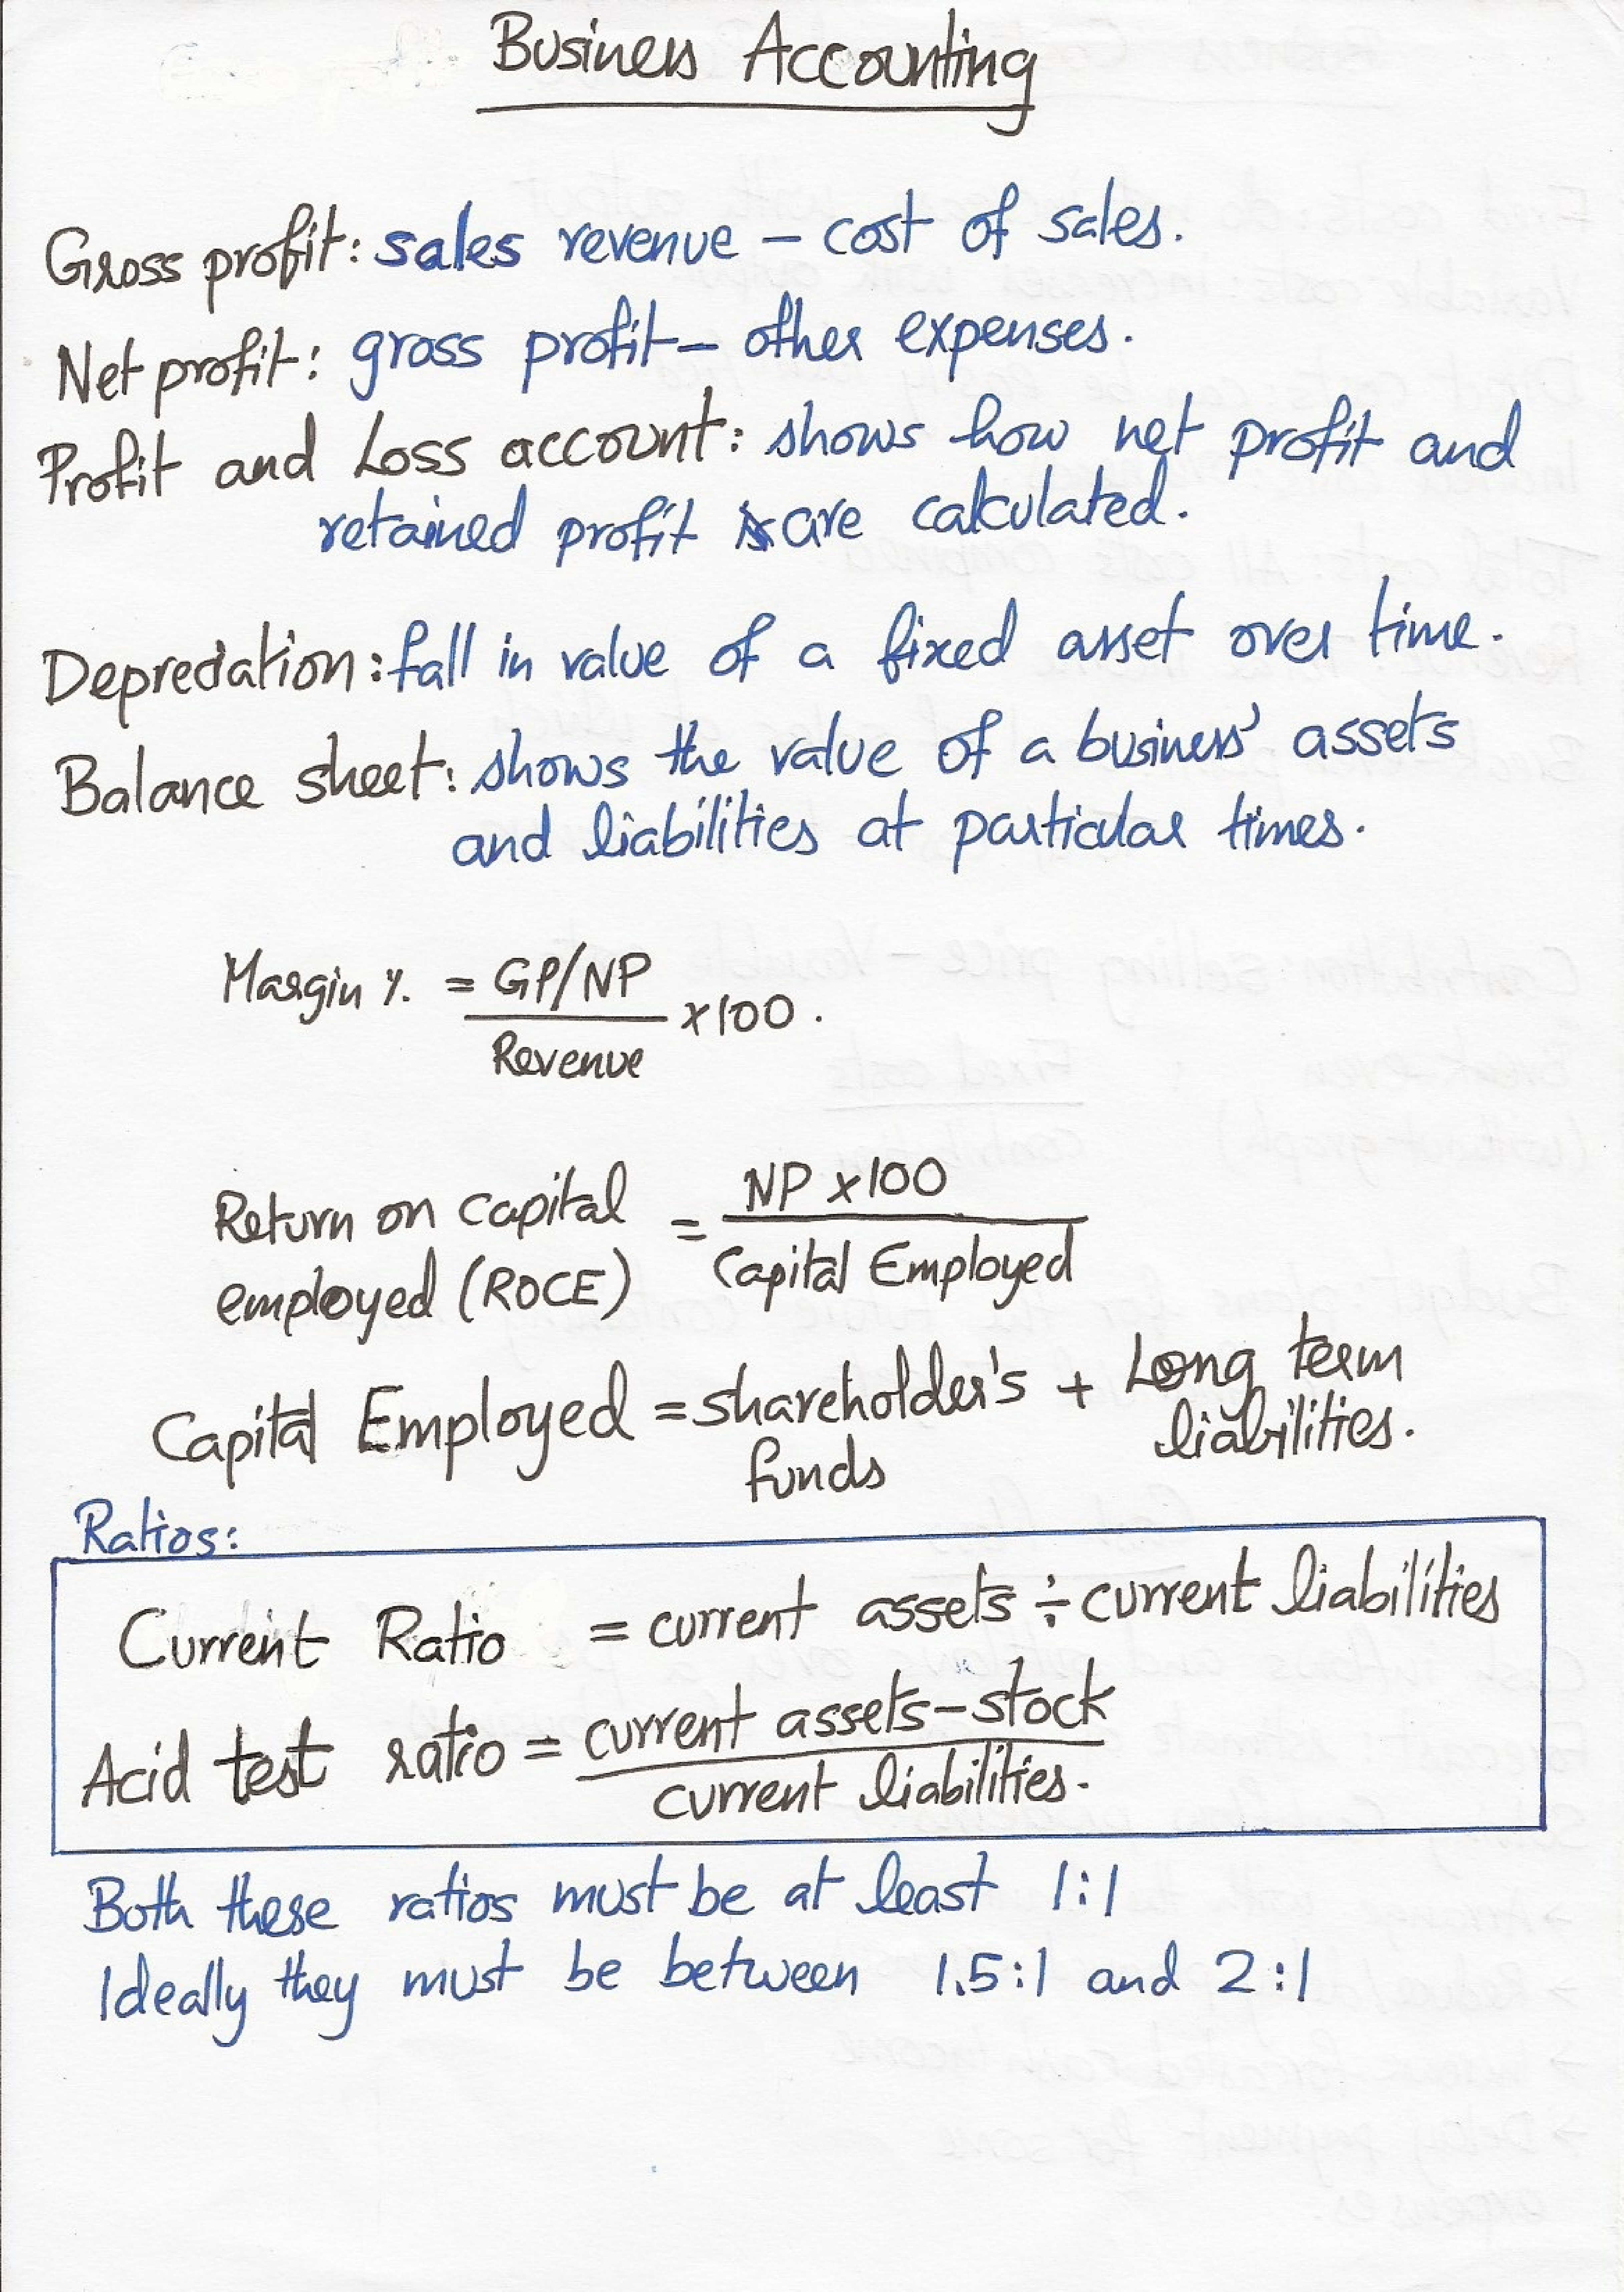 Business Accounting
Gross profit: sales revenue – cost of sales.
Net profit: gross profit – other expenses.
Profit and Loss account: shows how net profit and
retained profit are calculated.
Depreciation: fall in value of a fixed asset over time.
Balance sheet: shows the value of a business' assets
and liabilities at particular times.
Margin % = GP/NP
× 100.
Revenue
Return on capital = NP × 100
employed (ROCE) Capital Employed
Capital Employed = shareholder's + Long term
funds liabilities.
Ratios:
Current Ratio = current assets ÷ current liabilities
Acid test ratio = current assets – stock
current liabilities.
Both these ratios must be at least 1:1
Ideally they must be between 1.5:1 and 2:1